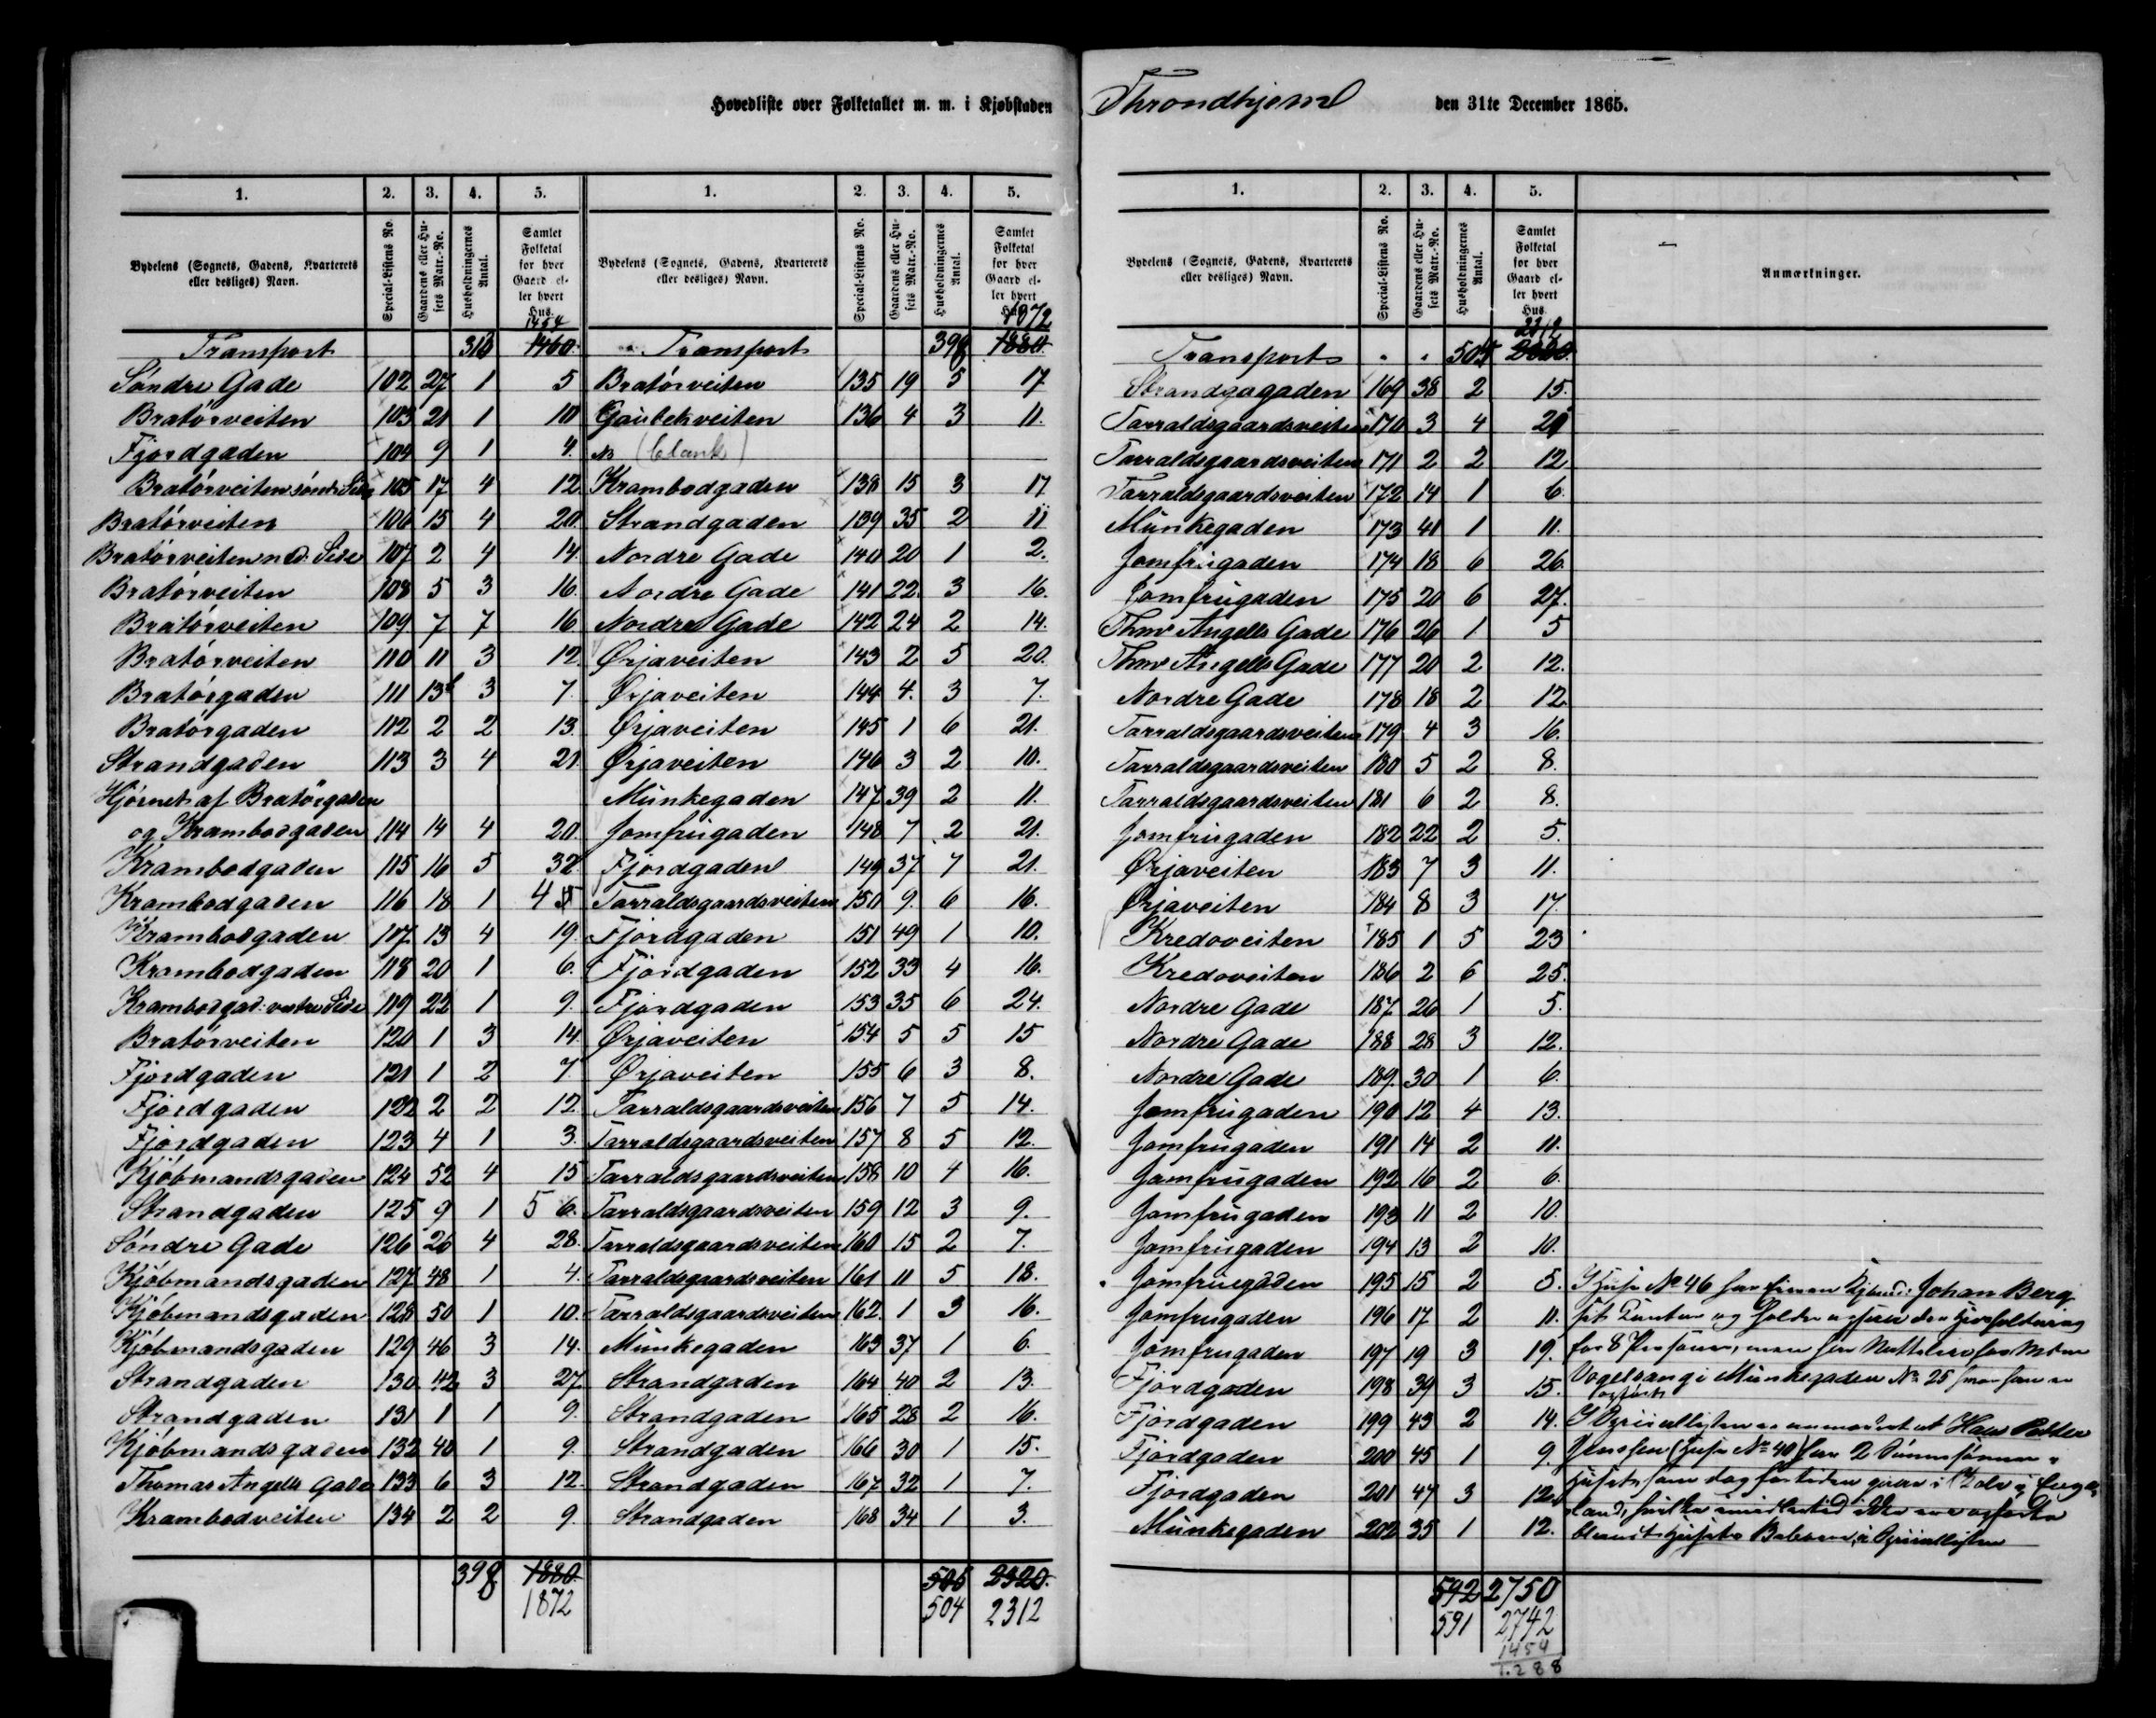 Hovedliste over Folketallet m. m. i Kjøbstaden Throndhjem den 31te December 1865.
1. 2. 3. 4. 5.
Bydelens (Sognets, Gadens, Kvarterets eller desliges) Navn. Special-Listens No. Gaardens eller Husets Matr.-No. Husholdningernes Antal. Samlet Folketal for hver Gaard eller hvert Hus.
1454
Transport 313 1460
Søndre Gade 102 27 1 5
Bratørveiten 103 21 1 10
Fjordgaden 104 9 1 4.
Bratørveiten søndr. Side 105 17 4 12
Bratørveiten 106 15 4 20
Bratørveiten nrd. Side 107 2 4 14.
Bratørveiten 108 5 3 16.
Bratørveiten 109 7 7 16
Bratørveiten 110 11 3 12
Bratørgaden 111 13b 3 7.
Bratørgaden 112 2 2 13.
Strandgaden 113 3 4 21
Hjørnet af Bratørgaden
og Krambodgaden 114 14 4 20.
Krambodgaden 115 16 5 32.
Krambodgaden 116 18 1 4 5
Krambodgaden 117 13 4 19.
Krambodgaden 118 20 1 6.
Krambodgad: vestre Side 119 22 1 9.
Bratørveiten 120 1 3 14.
Fjordgaden 121 1 2 7.
Fjordgaden 122 2 2 12.
Fjordgaden 123 4 1 3.
Kjöbmandsgaden 124 52 4 15
Strandgaden 125 9 1 5 6.
Søndre Gade 126 26 4 28.
Kjöbmandsgaden 127 48 1 4.
Kjöbmandsgaden 128 50 1 10.
Kjöbmandsgaden 129 46 3 14.
Strandgaden 130 42 3 27.
Strandgaden 131 1 1 9.
Kjöbmandsgaden 132 40 1 9.
Thomas Angells Gade 133 6 3 12.
Krambodveiten 134 2 2 9.
398 1880.
1872
1. 2. 3. 4. 5.
Bydelens (Sognets, Gadens, Kvarterets eller desliges) Navn. Special-Listens No. Gaardens eller Husets Matr.-No. Husholdningernes Antal. Samlet Folketal for hver Gaard eller hvert Hus.
1872
Transport 398 1880.
Bratørveiten 135 19 5 17
Gaubekveiten 136 4 3 11.
No (blank)
Krambodgaden 138 15 3 17
Strandgaden 139 35 2 11
Nordre Gade 140 20 1 2.
Nordre Gade 141 22. 3 16.
Nordre Gade 142 24 2 14.
Ørjaveiten 143 2 5 20.
Ørjaveiten 144 4. 3 7.
Ørjaveiten 145 1 6 21.
Ørjaveiten 146 3 2 10.
Munkegaden 147 39 2 11.
Jomfrugaden 148 7 2 21.
Fjordgaden 149 37 7 21.
Tarraldsgaardsveiten 150 9. 6 16.
Fjordgaden 151 49 1 10.
Fjordgaden 152 33 4 16.
Fjordgaden 153 35 6 24.
Ørjaveiten 154 5 5 15
Ørjaveiten 155 6 3 8.
Tarraldsgaardsveiten 156 7 5 14.
Tarraldsgaardsveiten 157 8 5 12.
Tarraldsgaardsveiten 158 10 4 16.
Tarraldsgaardsveiten 159 12 3 9.
Tarraldsgaardsveiten 160 15 2 7.
Tarraldsgaardsveiten 161 11 5 18.
Tarraldsgaardsveiten 162. 1 3 16.
Munkegaden 163 37 1 6.
Strandgaden 164 40 2 13.
Strandgaden 165 28 2 16.
Strandgaden 166 30 1 15.
Strandgaden 167 32 1 7.
Strandgaden 168 34 1 3.
505 2320.
504 2312
1. 2. 3. 4. 5.
Bydelens (Sognets, Gadens, Kvarterets eller desliges) Navn. Special-Listens No. Gaardens eller Husets Matr.-No. Husholdningernes Antal. Samlet Folketal for hver Gaard eller hvert Hus. Anmærkninger.
2312
Transport 505 2320
Strandgagaden 169 38 2 15.
Tarraldsgaardsveiten 170 3 4 21
Tarraldsgaardsveiten 171 2 2 12
Tarraldsgaardsveiten 172 14 1 6.
Munkegaden 173 41 1 11.
Jomfrugaden 174 18 6 26
Jomfrugaden 175 20 6 27.
Thms Angells Gade 176 26 1 5
Thms Angells Gade 177 20 2 12.
Nordre Gade 178 18 2 12
Tarraldsgaardsveiten 179. 4 3 16.
Tarraldsgaardsveiten 180 5 2 8.
Tarraldsgaardsveiten 181 6 2 8.
Jomfrugaden 182 22 2 5.
Ørjaveiten 183 7 3 11.
Ørjaveiten 184 8 3 17.
Kredoveiten 185 1 5 23
Kredoveiten 186 2 6 25.
Nordre Gade 187. 26 1 5.
Nordre Gade 188 28 3 12.
Nordre Gade 189. 30 1 6.
Jomfrugaden 190 12 4 13.
Jomfrugaden 191 14 2 11.
Jomfrugaden 192 16 2 6.
Jomfrugaden 193 11 2 10.
Jomfrugaden 194 13 2 10.
Jomfrugaden 195 15 2 5.
Jomfrugaden 196 17 2 11.
Jomfrugaden 197 19 3 19.
Fjordgaden 198 39 3 15.
Fjordgaden 199 43 2 14.
Fjordgaden 200 45 1 9.
Fjordgaden 201 47 3 12.
Munkegaden 202 35 1 12.
I Huse No 46 har Johan Berg
sit og
for 8 Personer, men har Natteleie hos
Vogelsang i Munkegaden No 25 hvor han er
opført
I er anmærket at Hans Petter
Jenssen (Huse No 40) har 2
Husets som i i Eng-
land, hvilke imidlertid ikke ere opførte
blandt Husets Beboere i
542 2750
591 2742
1454
1.288